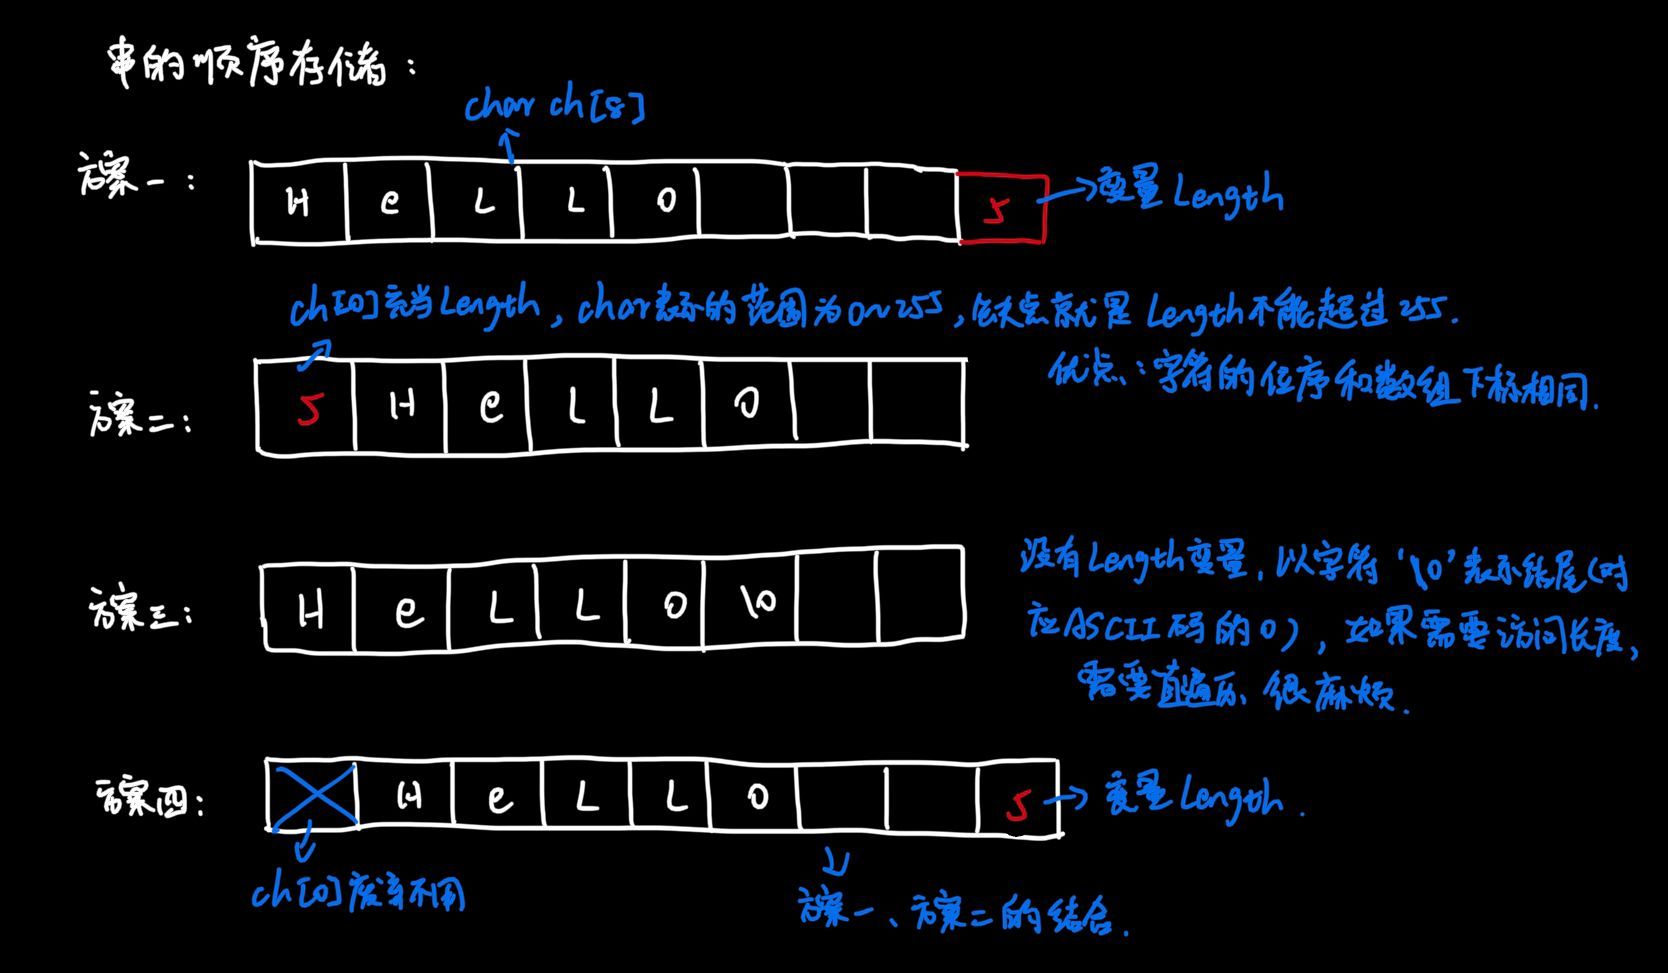 串的顺序存储：
char ch[8]
方案一：
H e L L O 5 变量Length
ch[0]充当Length，char表示的范围为0~255，缺点就是Length不能超过255.
优点：字符的位序和数组下标相同.
方案二：
5 H e L L O
方案三：
H e L L O \0
没有Length变量，以字符'\0'表示结尾(对
应ASCII码的0)，如果需要访问长度，
需要直遍历、很麻烦.
方案四：
H e L L O 5 变量Length.
ch[0]废弃不用
方案一、方案二的结合.